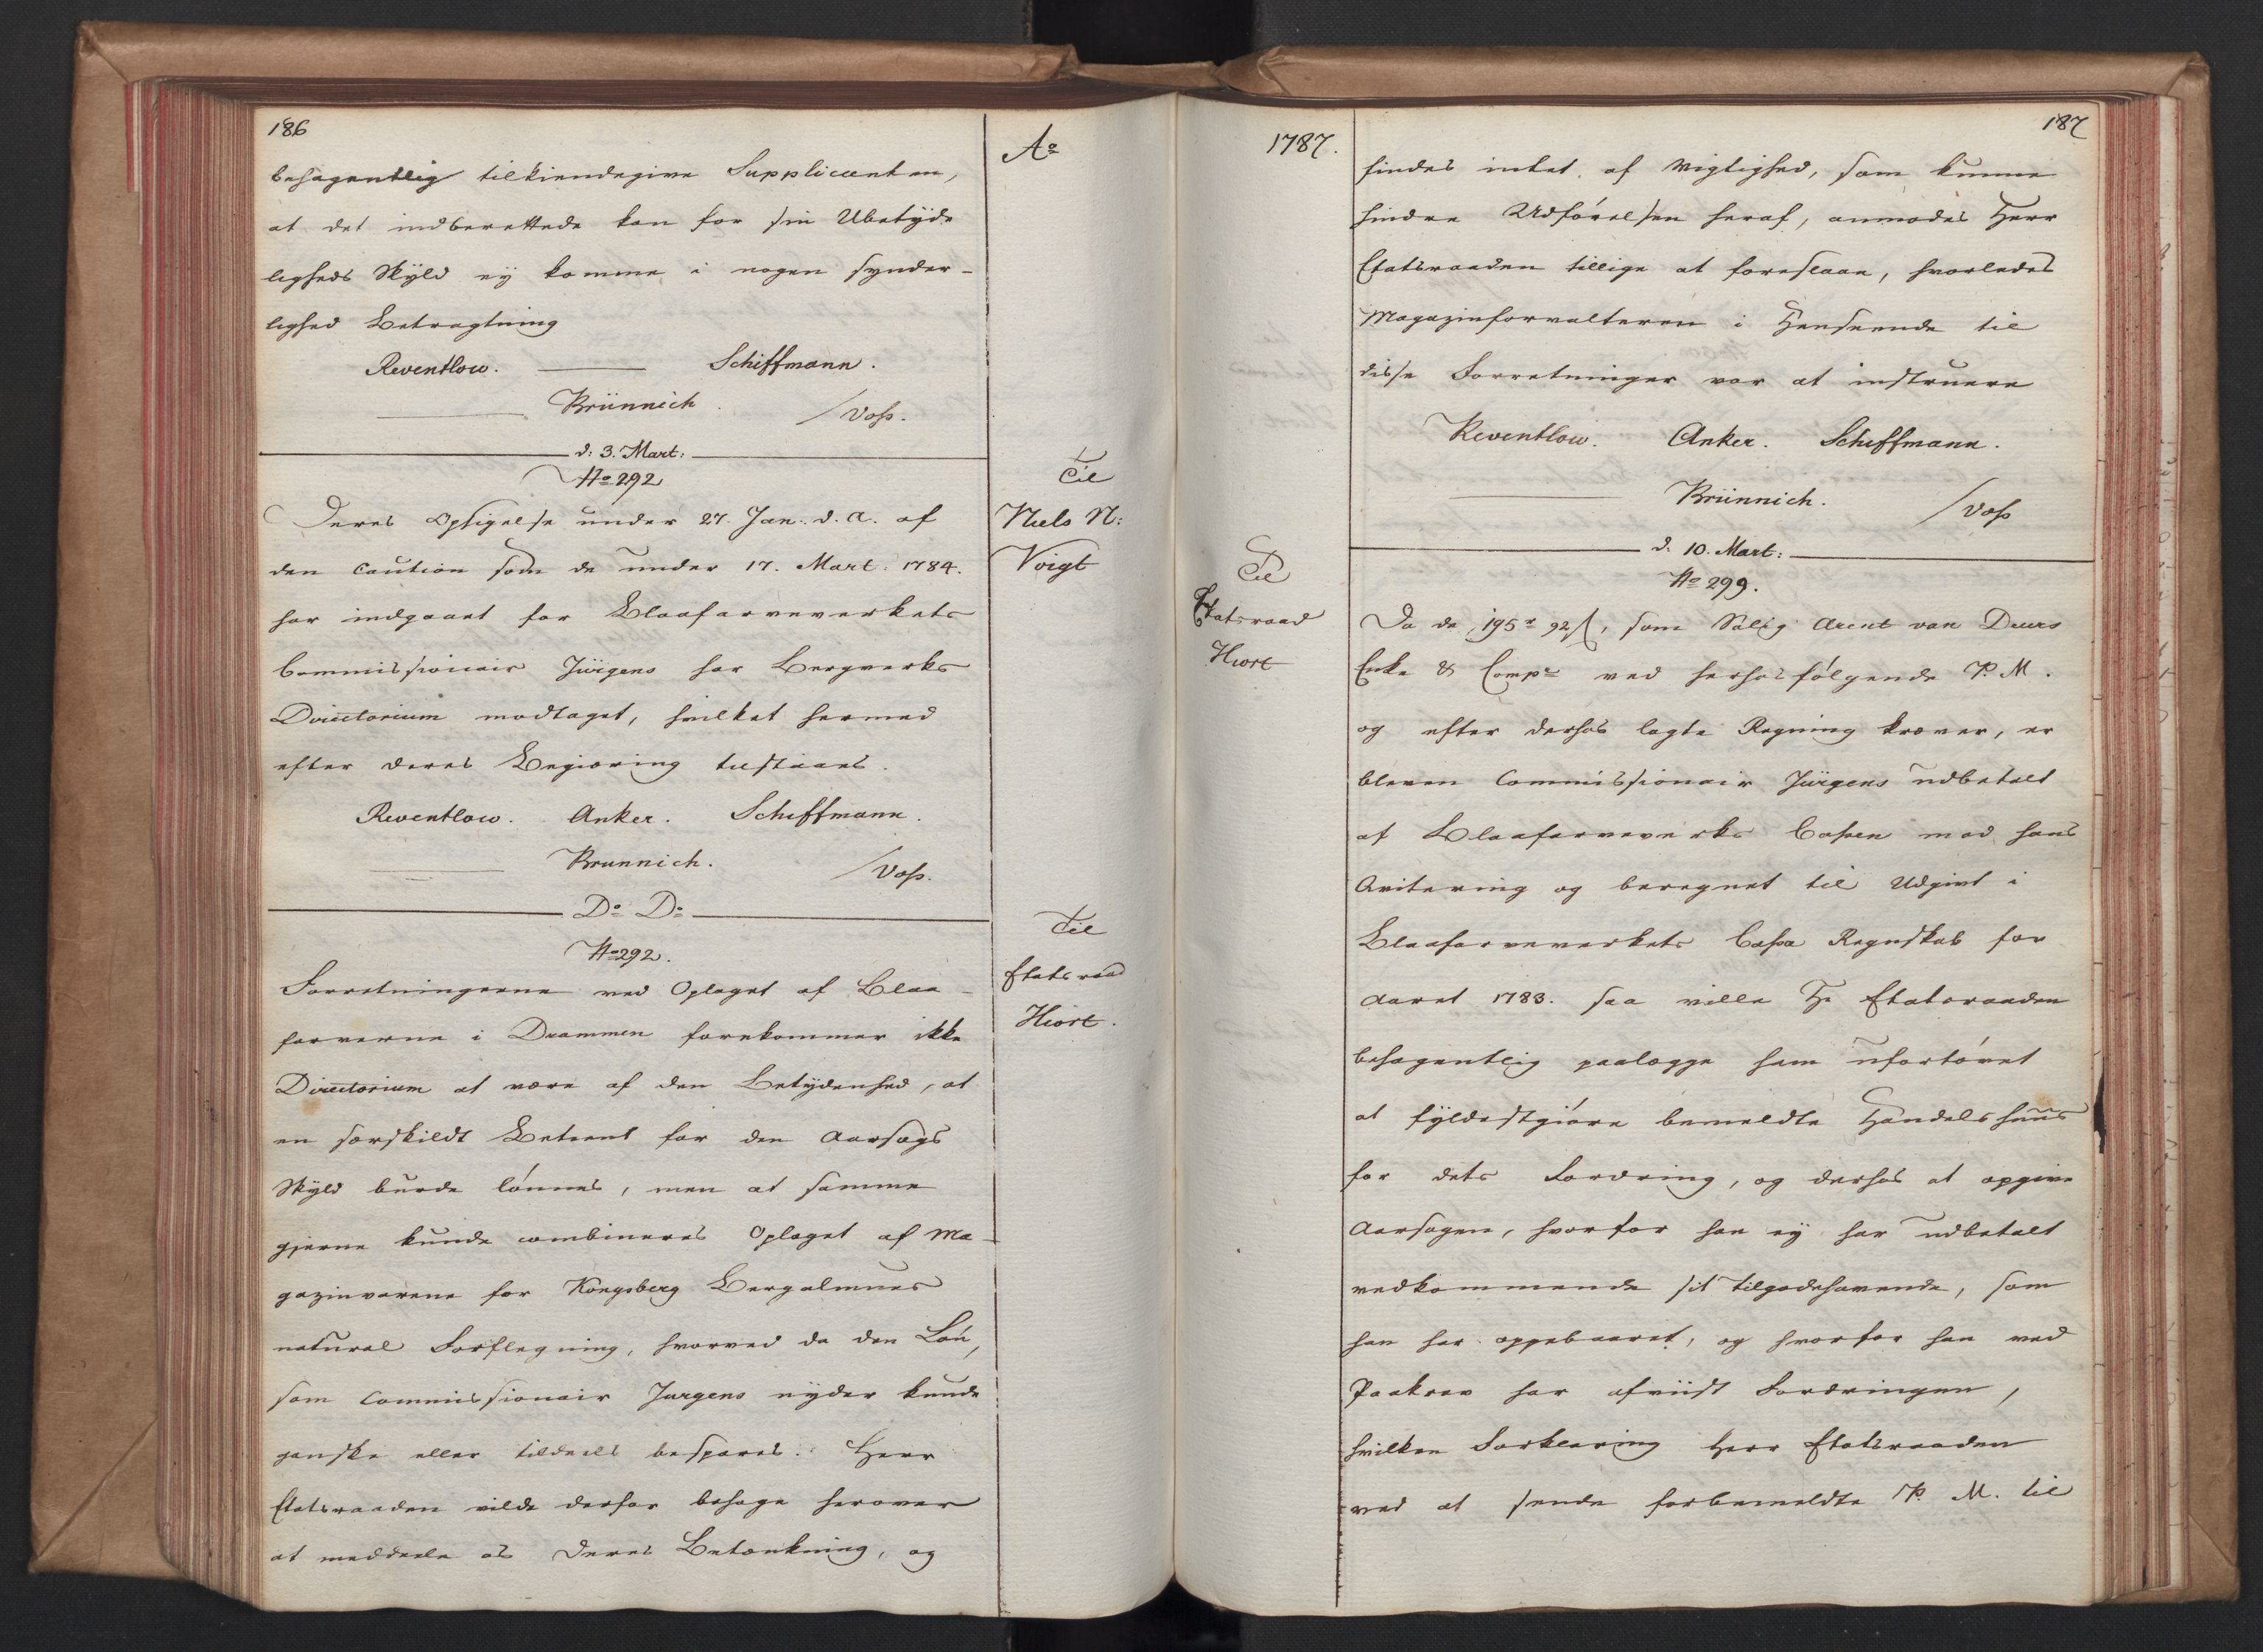 186
Ao
behagentlig tilkiendegive Supplicanten,
at det indberettede kan for sin Ubetÿde
ligheds Skÿld eÿ komme i nogen synder-
lighed Betragtning
Reventlow. Schiffmann.
Brünnich. /Voss.
d: 3. Mart:
No 292
Til
Niels N:
Voigt
Deres Opsigelse under 27 Jan. d. a. af
den Caution som de under 17. Mart. 1784.
har indgaaet for Blaafarveverkets
Commissionair Jürgens har Bergverks
Directorium modtaget, hvilket hermed
efter deres Begiæring tilstaaes.
Reventlow. Anker. Schiffmann.
Brunnich. /Voss.
Do Do
No 292.
Til
Etatsraad
Hiort.
Forretningerne ved Oplaget af Blaa-
farverne i Drammen forekommer ikke
Directorium at være af den Betÿdenhed, at
en særskildt Betient for den Aarsags
Skÿld burde lønnes, men at samme
gjerne kunde combineres Oplaget af Ma-
gazinvarene for Kongsberg Bergalmues
natural Forflegning, hvorved da den Løn,
som Commissionair Jurgens nÿder kunde
ganske eller tildeels bespares. Herr
Etatsraaden vilde derfor behage herover
at meddeele os Deres Betænkning, og
1787.
187
findes intet af Vigtighed, som kunne
hindre Udførelsen heraf, anmodes Herr
Etatsraaden tillige at foreslaae, hvorledes
Magazinforvalteren i Henseende til
disse Forretninger var at instruere
Reventlow. Anker. Schiffmann.
Brünnich. /Voss
d. 10. Mart:
No 299.
Til
Etatsraad
Hiort
Da de 195 r 92 ß, som Salig Arent van Deurs
Enke & Compe ved herhosfølgende P. M.
og efter derhos lagte Regning kræver, er
bleven Commissionair Jürgens udbetalt
af Blaafarveverks Cassen mod hans
Qvitering og beregnet til Udgivt i
Blaafarveverkets Cassa Regnskab for
Aaret 1783. saa ville Hr Etatsraaden
behagentlig paalægge ham ufortøvet
at fÿldestgiøre bemeldte Handelshuus
for dets Fordring, og derhos at opgive
Aarsagen, hvorfor han eÿ har udbetalt
vedkommende sit tilgodehavende, som
han har oppebaaret, og hvorfor han ved
Paakrav har afviist Fordringen,
hvilken Forklaring Herr Etatsraaden
ved at sende forbemeldte P. M. til